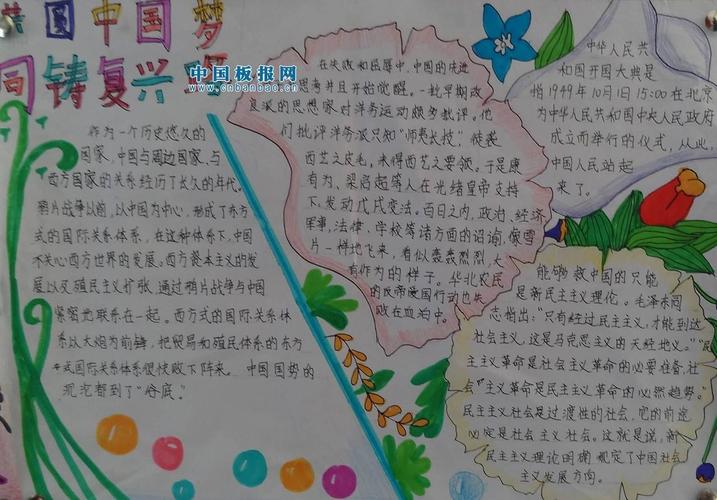 共圆中国梦
同铸复兴
中国板报网
www.cnbanbao.cn
作为一个历史悠久的
国家，中国与周边国家，与
西方国家的关系经历了长久的年代。
鸦片战争以前，以中国为中心，形成了东方
式的国际关系体系，在这种体系下，中国
不关心西方世界的发展。西方资本主义的发
展以及殖民主义扩张，通过鸦片战争与中国
紧密地联系在一起。西方式的国际关系体
系以大炮为前锋，把贸易和殖民体系的东方
式国际关系体很快败下阵来，中国国势的
沉沦都到了“谷底。”
在失败和屈辱中，中国的先进
思考并且开始觉醒。一批早期改
良派的思想家对洋务运动颇多批评。他
们批评洋务派只知“师夷长技，徒袭
西艺之皮毛，未得西艺之要领。于是康
有为，梁启超等人在光绪皇帝支持
下，发动戊戌变法。百日之内，政治，经济
军事，法律，学校等诸方面的诏谕，像雪
片一样地飞来，看似轰轰烈烈，大
有作为的样子。华北农民
的反帝爱国行动也失
败在血泊中。
中华人民共
和国开国大典是
指1949年10月1日15:00在北京
为中华人民共和国中央人民政府
成立而举行的仪式，从此，
中国人民站起
来了。
能够救中国的只能
是新民主主义理论。毛泽东同
志指出：“只有经过民主主义，才能到达
社会主义，这是马克思主义的天经地义。”“民
主主义革命是社会主义革命的必要准备，社
会主义革命是民主主义革命的必然趋势。”
民主主义社会是过渡性的社会，它的前途
必定是社会主义社会。这就是说，新
民主主义理论明确规定了中国社会
主义发展方向。